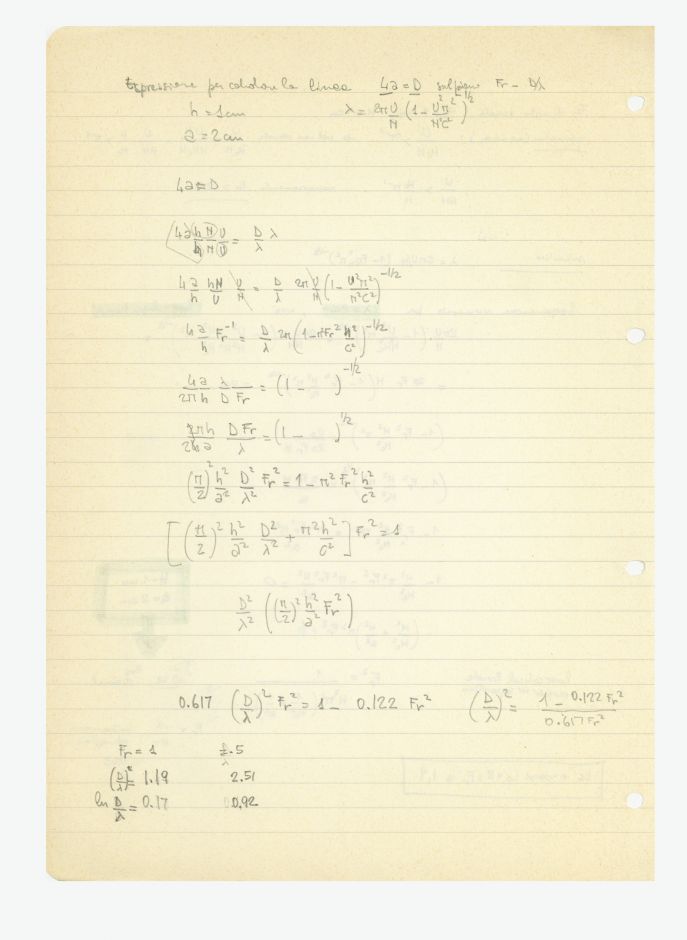 Espressione per calcolare la linea 4a = D sul piano Fr - D/λ
h = 1cm λ = 2πU/N (1 - U²π²/N²c²)^1/2
a = 2cm
4a = D
4a/h hN/N U/U = D/λ λ
4a/h hN/U U/N = D/λ 2π U/N (1 - U²π²/N²c²)^-1/2
4a/h Fr^-1 = D/λ 2π (1 - π²Fr² h²/c²)^-1/2
4a/2πh λ/(D Fr) = (1 - )^-1/2
2πh/4a D Fr/λ = (1 - )^1/2
(π/2)² h²/a² D²/λ² Fr² = 1 - π² Fr² h²/c²
[(π/2)² h²/a² D²/λ² + π²h²/c²] Fr² = 1
D²/λ² ((π/2)² h²/a² Fr²)
0.617 (D/λ)² Fr² = 1 - 0.122 Fr² (D/λ)² = (1 - 0.122 Fr²)/(0.617 Fr²)
Fr = 1 .5
(D/λ)² = 1.19 2.51
ln D/λ = 0.17 0.92